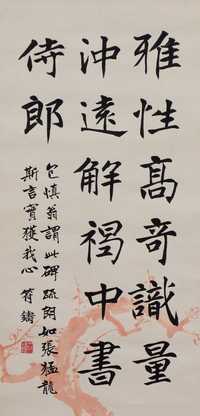 雅性高奇識量
沖遠解褐中書
侍郎
包慎翁謂此碑疏朗如張猛龍
斯言實獲我心 符鑄